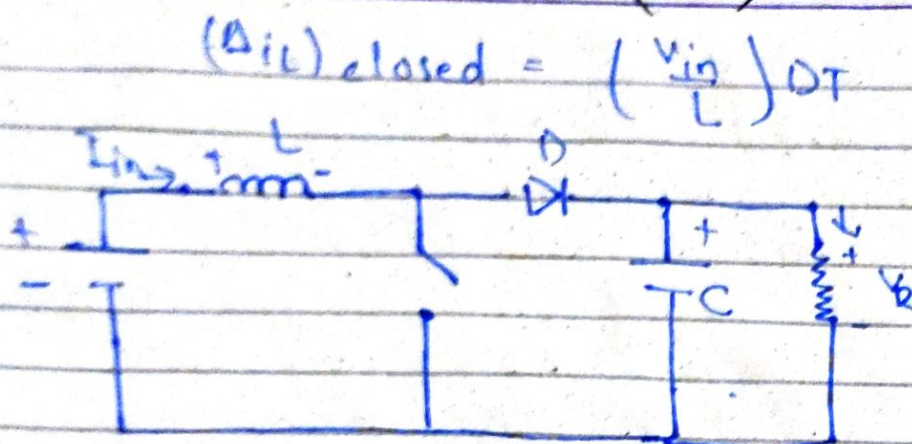 (Δ iL) closed = (Vin/L) DT
L
D
Iin → + -
+
-
+
C
+
-